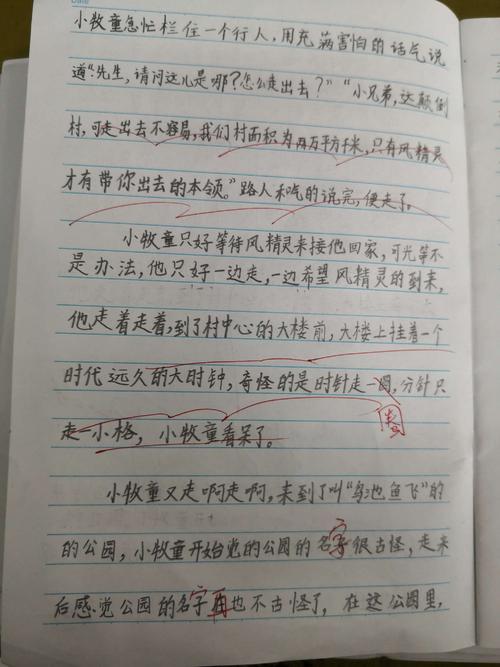 小牧童急忙拦住一个行人，用充满害怕的话气说
道“先生，请问这儿是哪？怎么走出去？”“小兄弟，这颠倒
村，可走出去不容易，我们村面积为两万平方千米，只有风精灵
才有带你出去的本领。”路人和气的说完，便走了。
小牧童只好等待风精灵来接他回家，可光等不
是办法，他只好一边走，一边希望风精灵的到来，
他走着走着，到了村中心的大楼前，大楼上挂着一个
时代远久的大时钟，奇怪的是时针走一圆，分针只
圈
走一小格，小牧童看呆了。
小牧童又走啊走啊，来到了叫“鸟池鱼飞”的
的公园，小牧童开始觉的公园的名字很古怪，走来
后感觉公园的名字再也不古怪了，在这公园里，